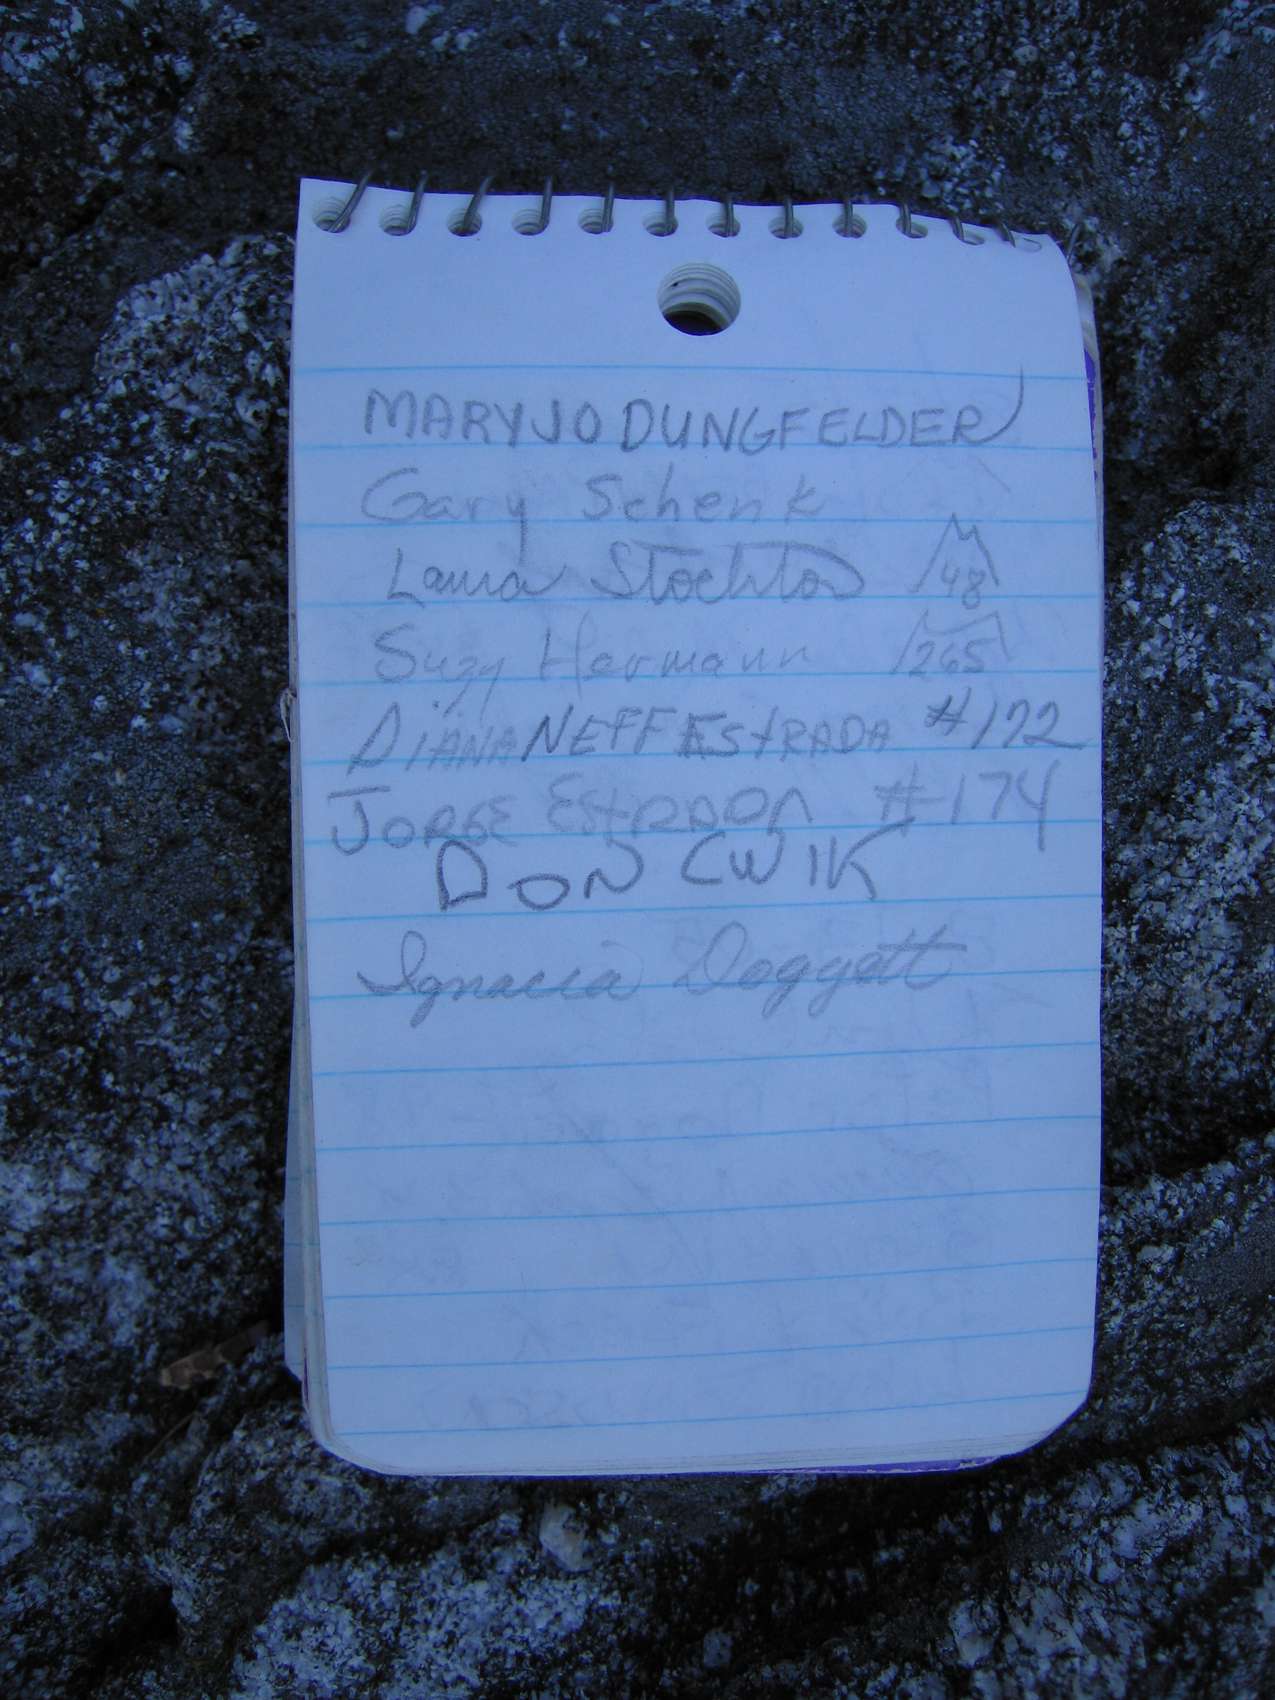 MARYJO DUNGFELDER
Gary Schenk
Laura Stockton 48
Suzy Hermann 265
DIANA NEFF ESTRADA #172
JORGE ESTRADA #174
DON CWIK
Ignacia Doggett